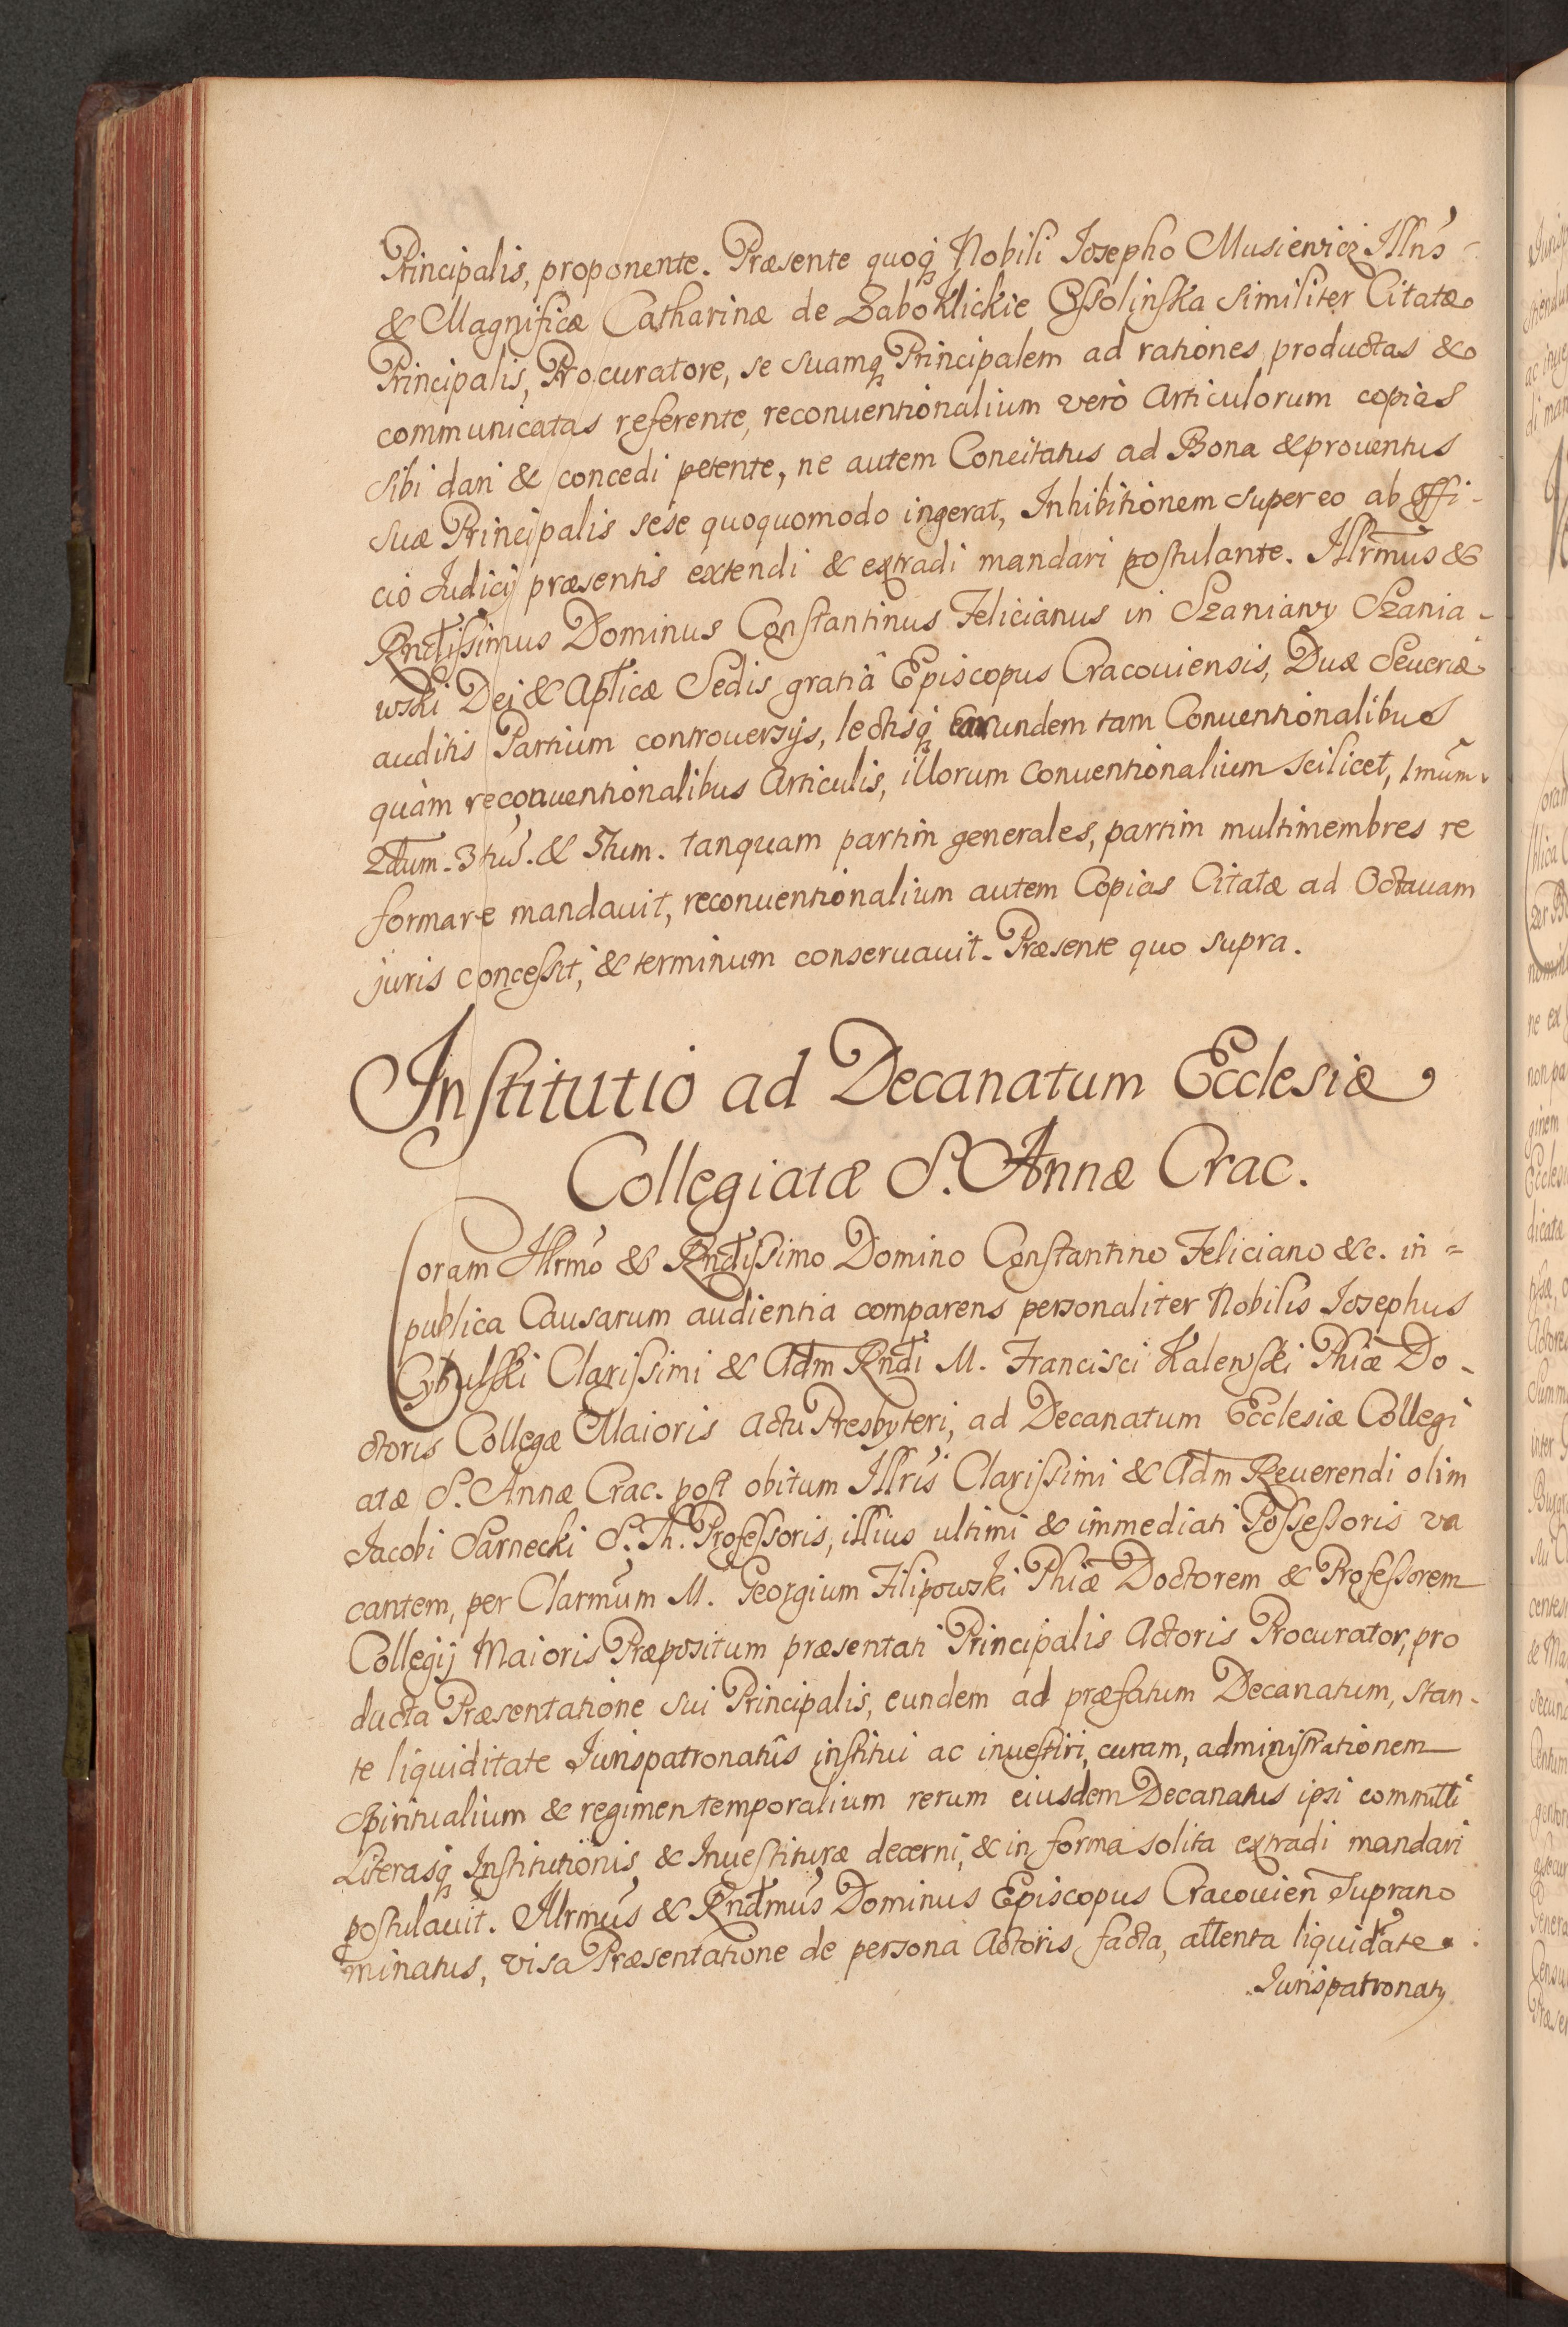 Principalis, proponente. Præsente quoq Nobili Josepho Musiewicz Illris
& Magnificæ Catharinæ de Zaboklickie Ossolinska similiter Citatæ
Principalis, Procuratore, se suamq Principalem ad rationes productas &
communicatas referente, reconventionalium verò Articulorum copias
sibi dari & concedi petente, ne autem Concitatus ad Bona & proventus
suæ Principalis sese quoquomodo ingerat, Inhibitionem super eo ab Offi-
cio Judicij præsentis extendi & extradi mandari postulante. Illrmus &
Rndissimus Dominus Constantinus Felicianus in Szaniawy Szania-
wski Dei & Aplicæ Sedis gratiâ Episcopus Cracoviensis, Dux Severiæ
auditis Partium controversijs, lectisq earundem tam Conventionalibus
quàm reconventionalibus Articulis, illorum Conventionalium scilicet, 1mum.
2dum. 3tiũ. & 5tum. tanquam partim generales, partim multimembres re
formare mandavit, reconventionalium autem Copias Citatæ ad Octavam
juris concessit, & terminum conservavit. Præsente quo supra.
Institutio ad Decanatum Ecclesiæ
Collegiatæ S. Annæ Crac.
Coram Illrmo & Rndissimo Domino Constantino Feliciano &c. in=
publica Causarum audientia comparens personaliter Nobilis Josephus
Cybulski Clarissimi & Adm Rndi M. Francisci Kalewski Phiæ Do-
ctoris Collegæ Maioris Actu Presbyteri, ad Decanatum Ecclesiæ Collegi
atæ S. Annæ Crac. post obitum Illris Clarissimi & Adm Reverendi olim
Jacobi Sarnecki S. Th. Professoris, illius ultimi & immediati Possessoris va
cantem, per Clarmum M. Georgium Filipowski Phiæ Doctorem & Professorem
Collegij Maioris Præpositum præsentati Principalis Actoris Procurator, pro
ducta Præsentatione sui Principalis, eundem ad præfatum Decanatum, stan-
te liquiditate Jurispatronatûs institui ac investiri, curam, administrationem
Spiritualium & regimen temporalium rerum eiusdem Decanatus ipsi committi
Literasq Institutionis & Investituræ decerni, & in forma solita extradi mandari
postulavit. Illrmus & Rndmus Dominus Episcopus Cracovien Suprano
minatus, visa Præsentatione de persona Actoris facta, attenta liquidate
Jurispatronatq